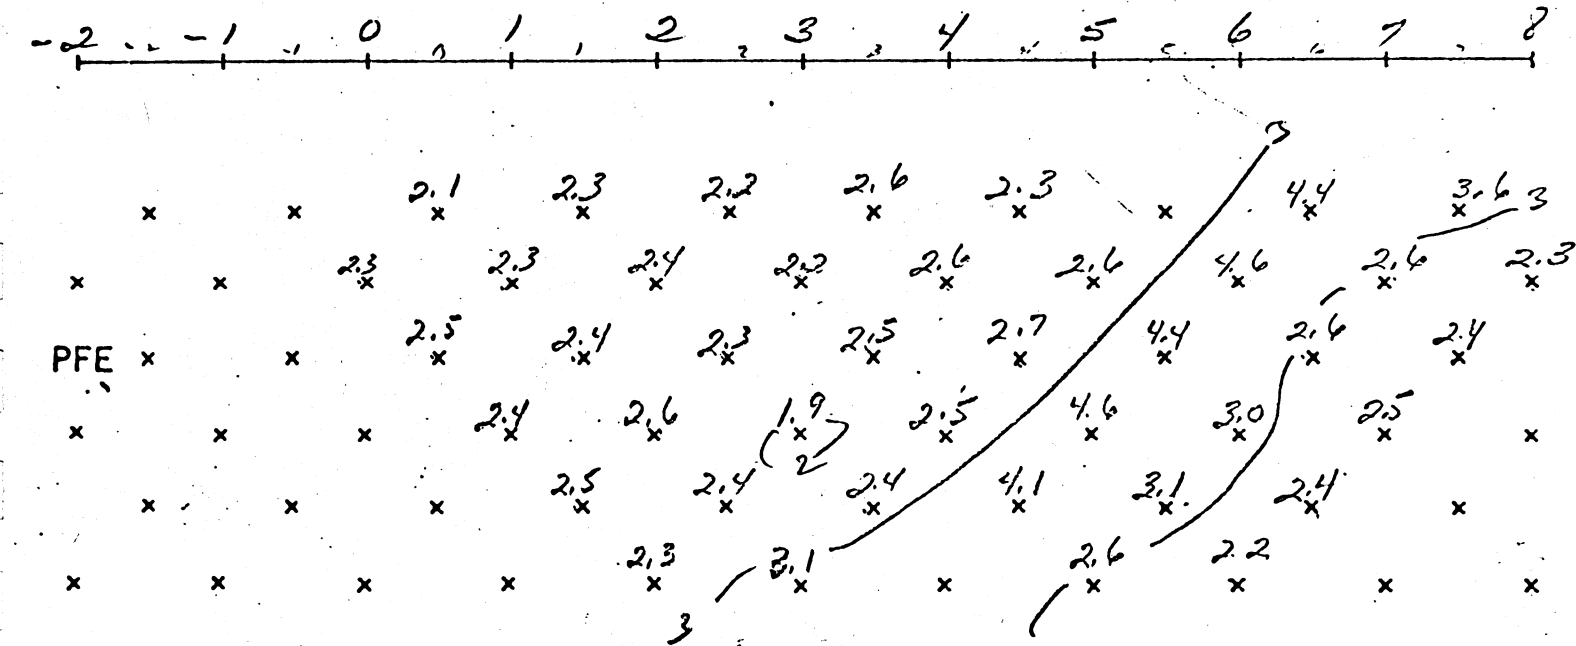 -2 -1 0 1 2 3 4 5 6 7 8
3
2.1 2.3 2.2 2.6 2.3 4.4 3.6 3
2.3 2.3 2.4 2.2 2.6 2.6 4.6 2.6 2.3
PFE 2.5 2.4 2.3 2.5 2.7 4.4 2.6 2.4
2.4 2.6 1.9 2.5 4.6 3.0 2.5
2
2.5 2.4 2.4 4.1 3.1 2.4
2.3 3.1 2.6 2.2
3